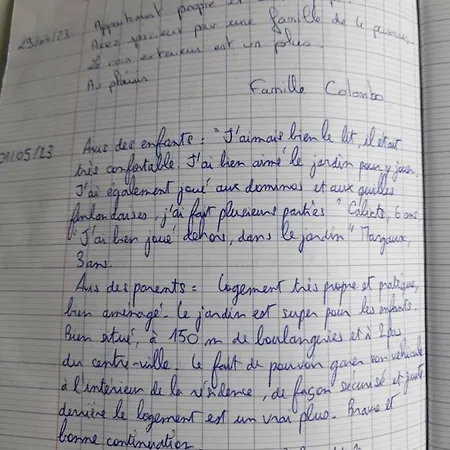 29/04/23 Appartement propre et
Assez spacieux pour une famille de 4 personnes.
Le coin extérieur est un plus.
Au plaisir
Famille Colombo
01/05/23 Avis des enfants : "J'aimais bien le lit, il était
très confortable. J'ai bien aimé le jardin pour y jouer.
J'ai également joué aux dominos et aux quilles
finlandaises, j'ai fait plusieurs parties" Calixte, 6 ans
"J'ai bien joué dehors, dans le jardin" Margaux,
3 ans.
Avis des parents : Logement très propre et pratique,
bien aménagé. Le jardin est super pour les enfants.
Bien situé, à 150 m de boulangeries et à 2 pas
du centre-ville. Le fait de pouvoir garer son véhicule
à l'intérieur de la résidence, de façon sécurisé et juste
derrière le logement est un vrai plus. Bravo et
bonne continuation.